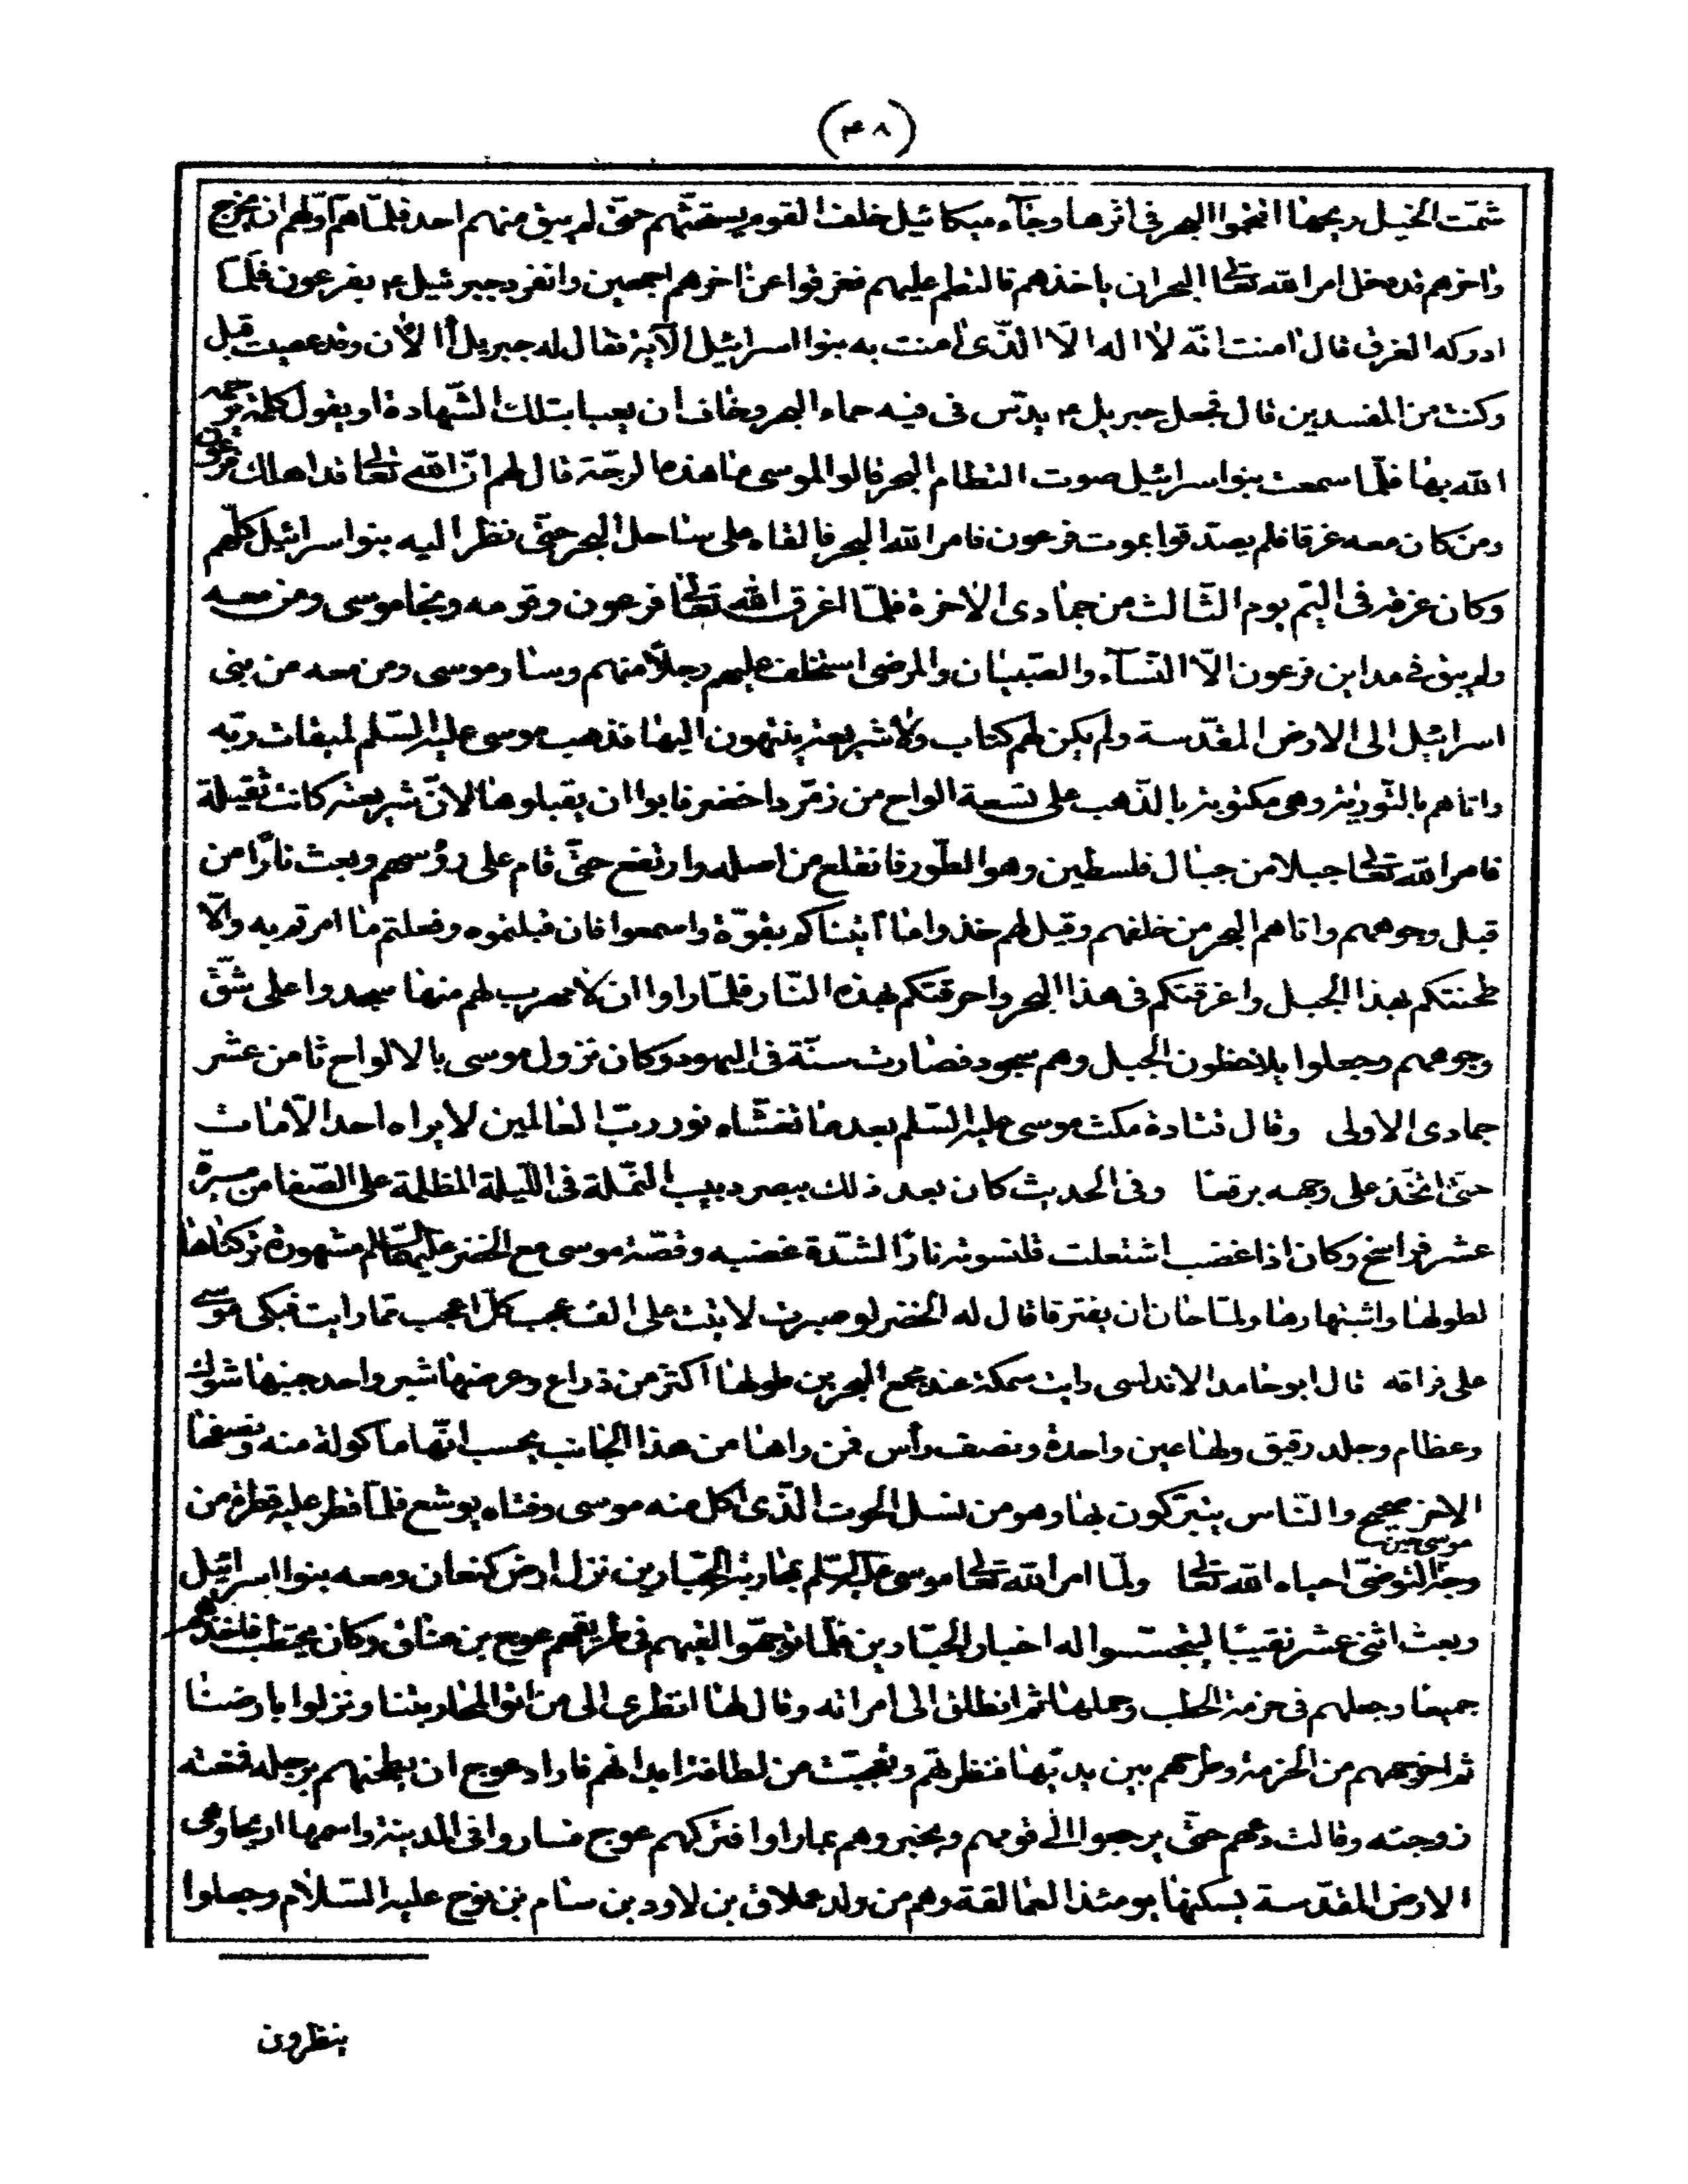 (٤٨)
شمّت الخيل ريحها اقتحموا البحر فى اثرها وجآء ميكائيل خلف القوم يستحثّهم حتّى لم يبق منهم احد فلمّا همّ اوّلهم ان يخرج
واخرهم قد دخل امر الله تعالى البحر ان ياخذهم فالتطم عليهم فغرقوا عن اخرهم اجمعين وانفرد جبرئيل ع بفرعون فلمّا
ادركه الغرق قال امنت انّه لا اله الّا الّذى امنت به بنوا اسرائيل الآية فقال له جبريل أالان وقد عصيت قبل
وكنت من المفسدين قال فجعل جبريل ع يدسّ فى فيه حماء البحر وخاف ان يعبا بتلك الشّهادة او يقول كلمة يرحمه
الله بها فلمّا سمعت بنوا سرائيل صوت التطام البحر قالوا لموسى ما هذه الرجّة قال لهم انّ الله تعالى قد اهلك فرعون
ومن كان معه غرقا فلم يصدّقوا بموت فرعون فامر الله البحر فالقاه على ساحل البحر حتّى نظر اليه بنوا سرائيل كلّهم
وكان غرقه فى اليّم يوم الثّالث من جمادى الاخرة فلمّا اغرق الله تعالى فرعون وقومه ونجا موسى ومن معه
ولم يبق فى مداين فرعون الّا النّسآء والصّبيان والمرضى استخلف عليهم رجلاً منهم وسار موسى ومن معه من بنى
اسرائيل الى الارض المقدّسة ولم يكن لهم كتاب ولا شريعة ينتهون اليها فذهب موسى عليه السّلم لميقات ربّه
واتاهم بالتّورية وهى مكتوبة بالذّهب على تسعة الواح من زمرّد اخضر فابوا ان يقبلوها لانّ شريعته كانت ثقيلة
فامر الله تعالى جبلا من جبال فلسطين وهو الطّور فانقلع من اصله وارتفع حتّى قام على رؤسهم وبعث نارًا من
قبل وجوههم واتاهم البحر من خلفهم وقيل لهم خذوا ما آتيناكم بقوّة واسمعوا فان قبلتموه وفعلتم ما امرتم به والّا
طحنتكم بهذا الجبل واغرقتكم فى هذا البحر واحرقتكم بهذه النّار فلمّا راوا ان لا مهرب لهم منها سجدوا على شقّ
وجوههم وجعلوا يلاحظون الجبل وهم سجود فصارت سنّة فى اليهود وكان نزول موسى بالالواح ثامن عشر
جمادى الاولى وقال قتادة مكث موسى عليه السّلم بعد ما تغشّاه نور ربّ العالمين لا يراه احد الّا مات
حتّى اتّخذ على وجهه برقعا وفى الحديث كان بعد ذلك يبصر دبيب النّملة فى اللّيلة المظلمة على الصّفا من مسيرة
عشر فراسخ وكان اذا غضب اشتعلت قلنسوته نارًا لشدّة غضبه وقصّة موسى مع الخضر عليهما السّلم مشهورة تركناها
لطولها واشتهارها ولمّا حان ان يفترقا قال له الخضر لو صبرت لاتيت على الف عجب كلّ اعجب ممّا رايت فبكى موسى
على فراقه قال ابو حامد الاندلسى رايت سمكة عند مجمع البحرين طولها اكثر من ذراع وعرضها شبر واحد جنبها شوك
وعظام وجلد رقيق ولها عين واحدة ونصف رأس فمن راها من هذا الجانب يحسب انّها ماكولة منه ونصفها
الاخر صحيح والنّاس يتبرّكون بها وهو من نسل الحوت الّذى اكل منه موسى وفتاه يوشع فلمّا قطر عليه قطرة من
موسى حين
وجه التوضّى احياه الله تعالى ولمّا امر الله تعالى موسى عليه السّلم بمحاربة الجبّارين نزل ارض كنعان ومعه بنوا اسرائيل
وبعث اثنى عشر نقيبًا ليتجسّسوا له اخبار الجبّارين فلمّا توجّهوا لقيهم فى طريقهم عوج بن عناق وكان يحتطب فاخذهم
جميعا وجعلهم فى حزمة الحطب وحملها ثم انطلق الى امراته وقال لها انظرى الى من اتوا لمحاربتنا ونزلوا بارضنا
ثم اخرجهم من الحزمة وطرحهم بين يديها فنظرتهم وتعجبت من لطافة ابدانهم فاراد عوج ان يطحنهم برجله فمنعته
زوجته وقالت دعهم حتّى يرجعوا الى قومهم ويخبروهم بما راوا فتركهم عوج فساروا فى المدينة واسمها اريحا وهى
الارض المقدّسة يسكنها يومئذ العمالقة وهم من ولد عملاق بن لاود بن سام بن نوح عليه السّلام وجعلوا
ينظرون